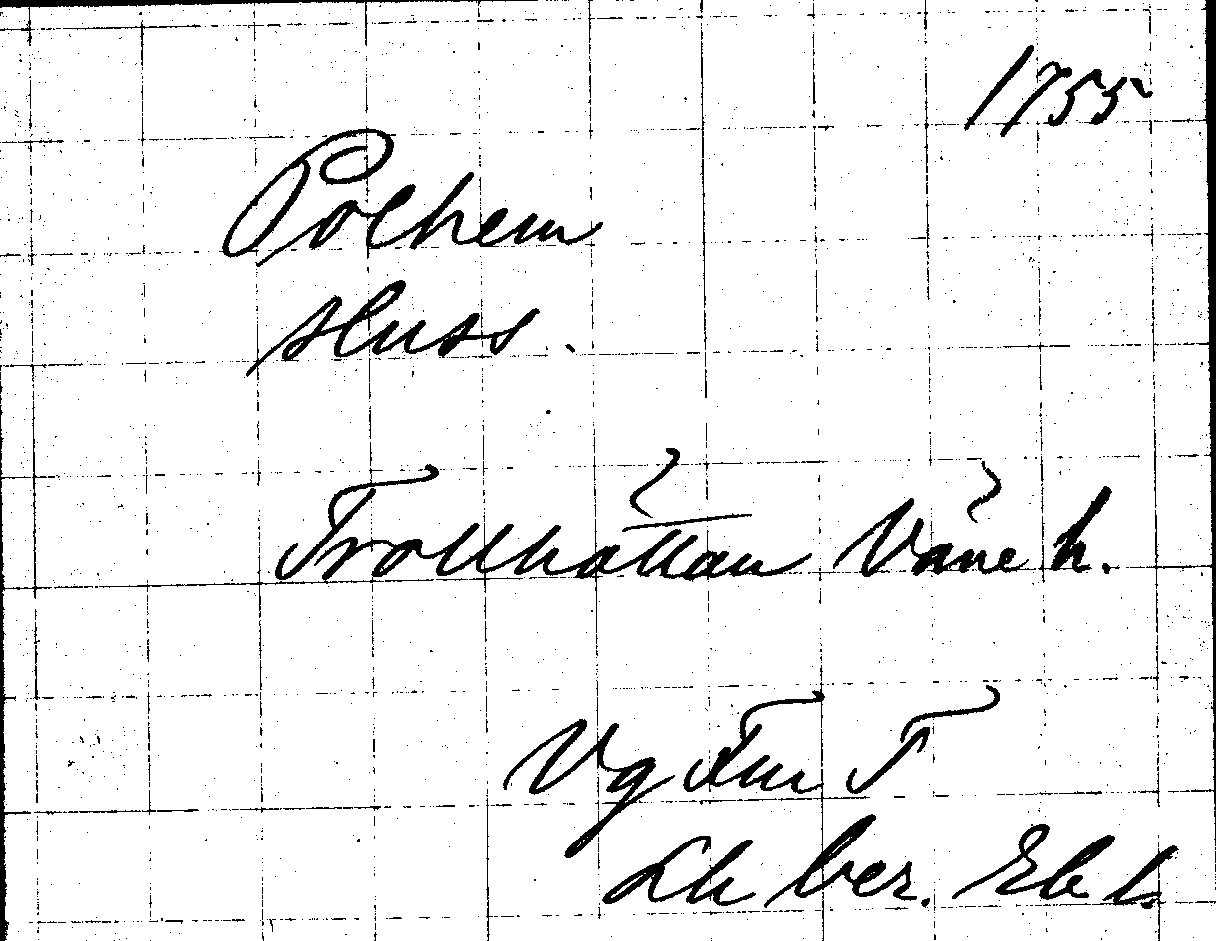 1755
Polhem
sluss.
Trollhättan Väne h.
Vg Fur T
Lh ber.